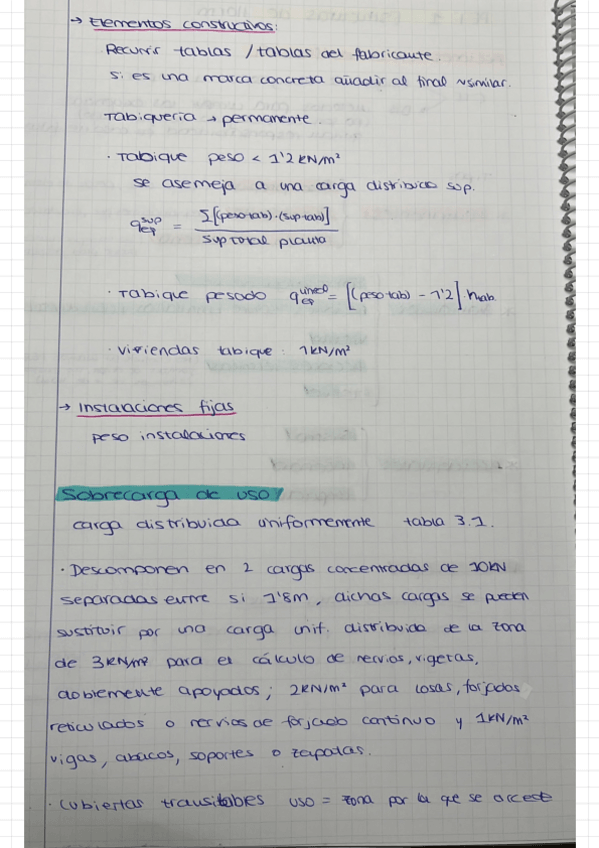 → Elementos constructivos:
Recurrir tablas / tablas del fabricante.
Si es una marca concreta añadir al final ~similar.
Tabiquería → permanente.
· Tabique peso < 1'2 kN/m²
se asemeja a una carga distribuida sup.
q_ep^sup = Σ[(peso tab)·(sup tab)] / sup total planta
· Tabique pesado q_ep^lineal = [(peso tab) - 1'2]·h_tab.
· viviendas tabique: 1 kN/m²
→ Instalaciones fijas
peso instalaciones
Sobrecarga de uso
carga distribuida uniformemente tabla 3.1.
· Descomponen en 2 cargas concentradas de 10kN
separadas entre si 1'8m, dichas cargas se pueden
sustituir por una carga unif. distribuida de la zona
de 3kN/m² para el cálculo de nervios, vigetas,
doblemente apoyados; 2kN/m² para losas, forjados
reticulados o nervios de forjado continuo y 1kN/m²
vigas, abacos, soportes o zapatas.
· Cubiertas transitables uso = zona por la que se accede